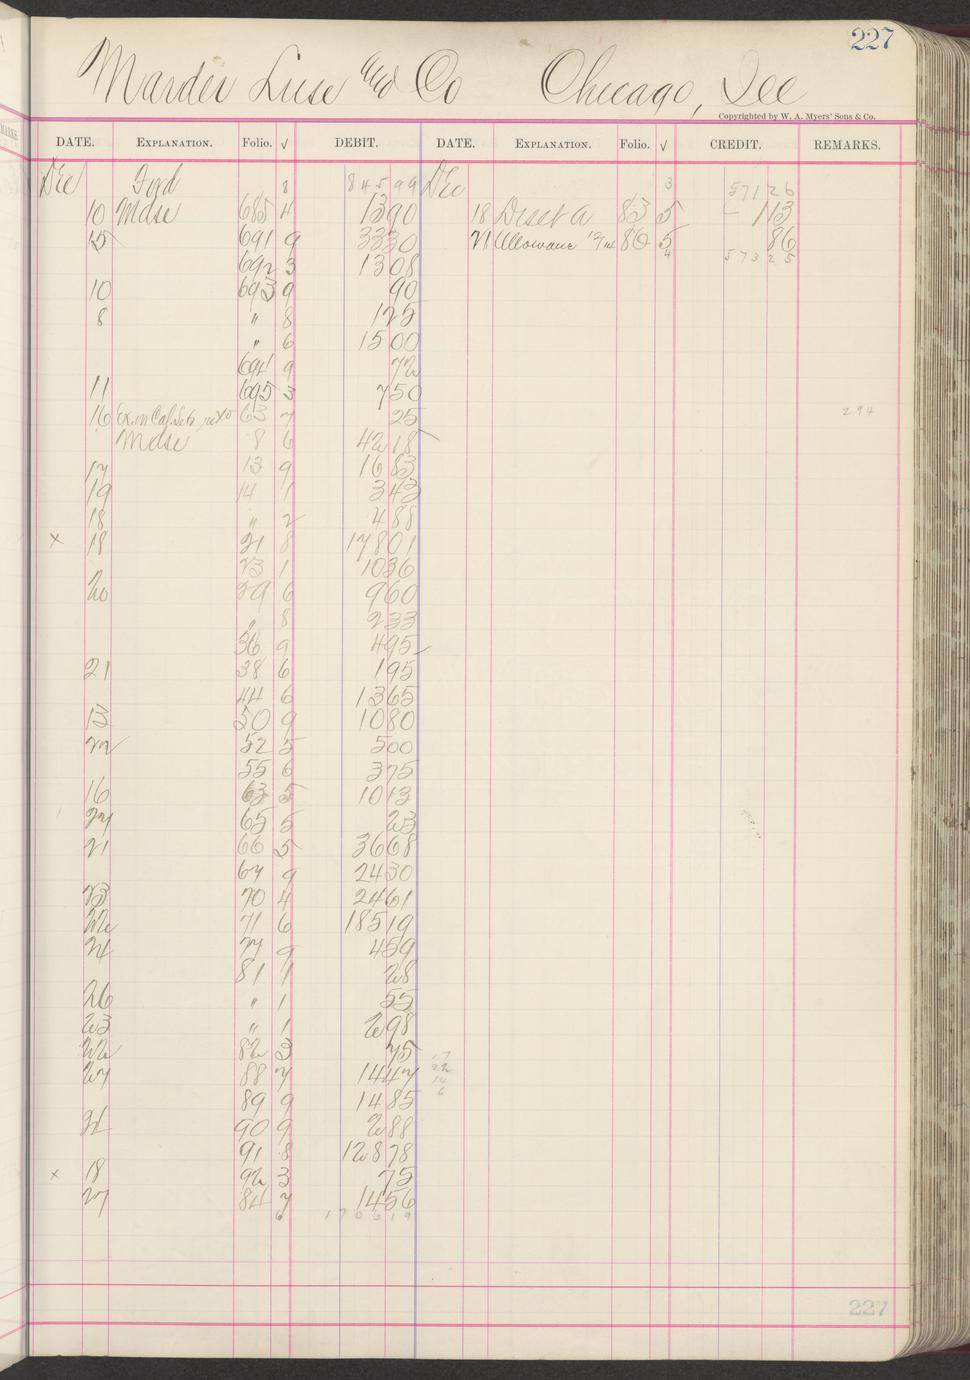 227
Marder Luse and Co Chicago, Ill
Copyrighted by W. A. Myers' Sons & Co.
DATE. EXPLANATION. Folio. √ DEBIT. DATE. EXPLANATION. Folio. √ CREDIT. REMARKS.
Dec Ford 8 845 99 Dec 3 571 26
10 Mdse 685 4 13 90 18 83 5 1 13
15 691 9 33 30 21 Allowance 80 5 86
692 3 13 08 4 573 25
10 693 9 90
8 " 8 1 25
" 6 15 00
694 9 72
11 695 3 7 50
16 63 7 25 294
Mdse 8 6 42 18
17 13 9 16 83
19 14 1 3 43
18 " 2 4 88
x 18 21 8 178 01
23 1 10 36
20 29 6 9 60
" 8 2 33
36 9 4 95
21 38 6 1 95
44 6 13 65
13 50 9 10 80
22 52 5 5 00
55 6 3 75
16 63 5 10 13
24 65 5 23
21 66 5 36 68
67 9 24 30
23 70 4 24 61
22 71 6 185 19
24 77 9 4 59
81 1 28
26 " 1 55
23 " 1 2 98
22 82 3 75
27 88 7 14 47
89 9 14 85
24 90 9 2 88
91 8 128 78
x 18 92 3 75
27 84 7 14 56
6
227